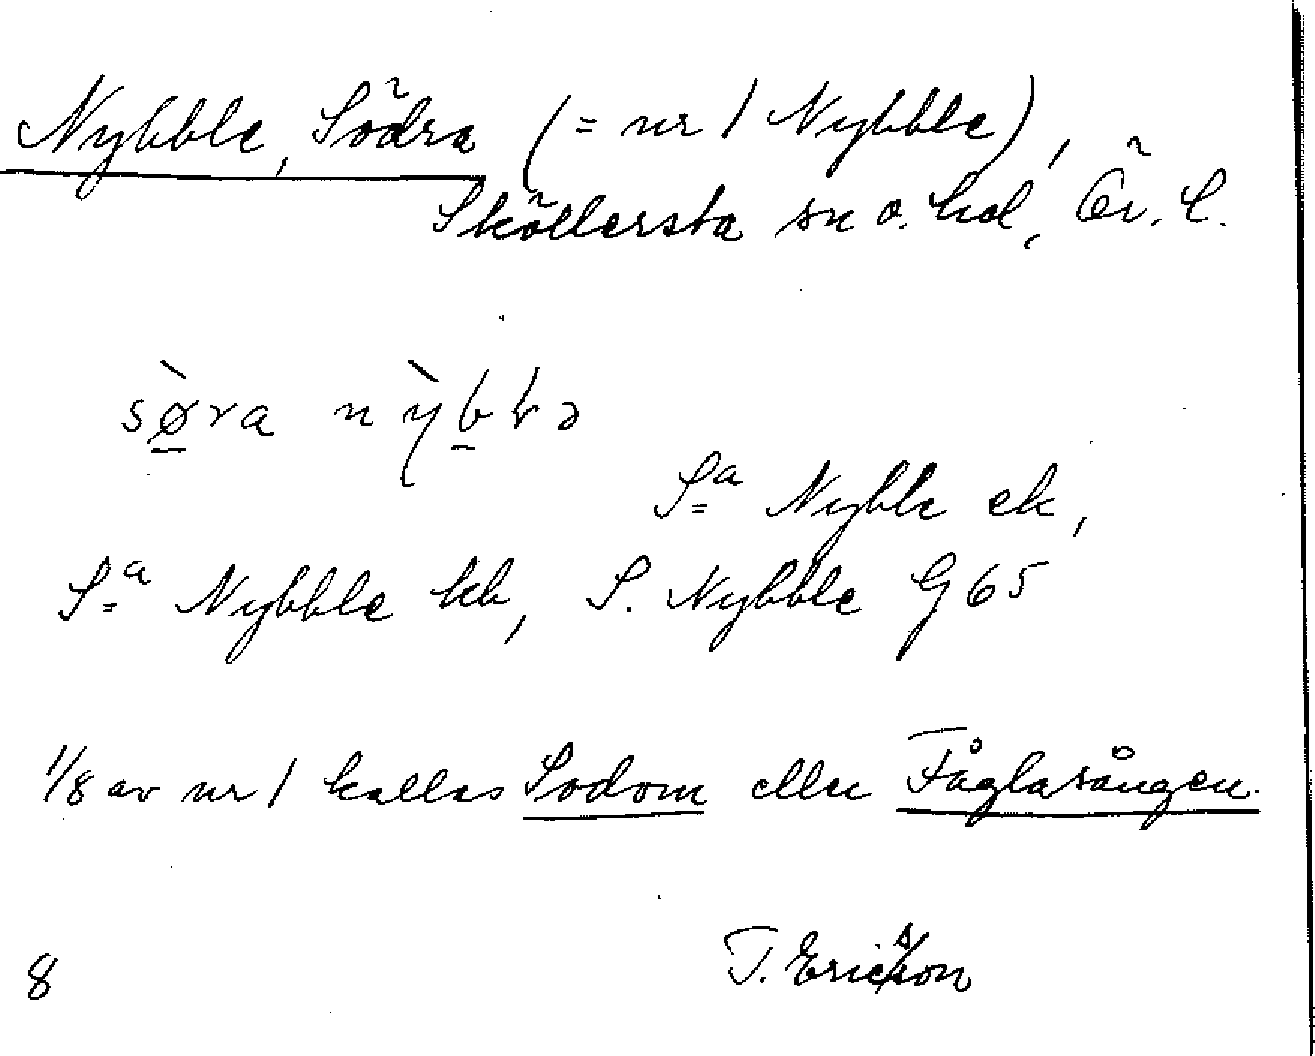 Nybble, Södra (= nr 1 Nybble),
Sköllersta sn o. hd, Ör. l.
sø̀ra nỳbbə
Sᵃ Nyble ek,
Sᵃ Nybble kb, S. Nybble G 65
1/8 av nr 1 kallas Sodom eller Fåglasången.
8 T. Ericsson